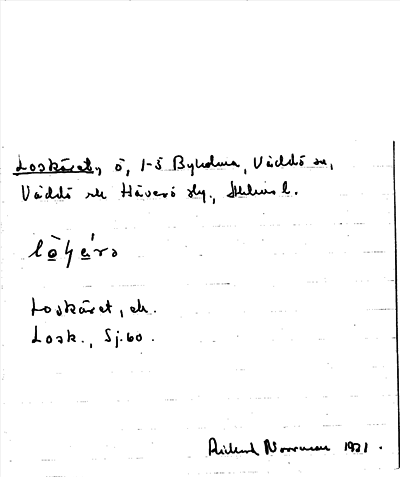 Loskäret, ö, 1-5 Byholma, Väddö sn,
Väddö o Häverö sly., Sthlms l.
Loskäret, ek.
Losk., Sj.60.
Rickard Norrman 1921.